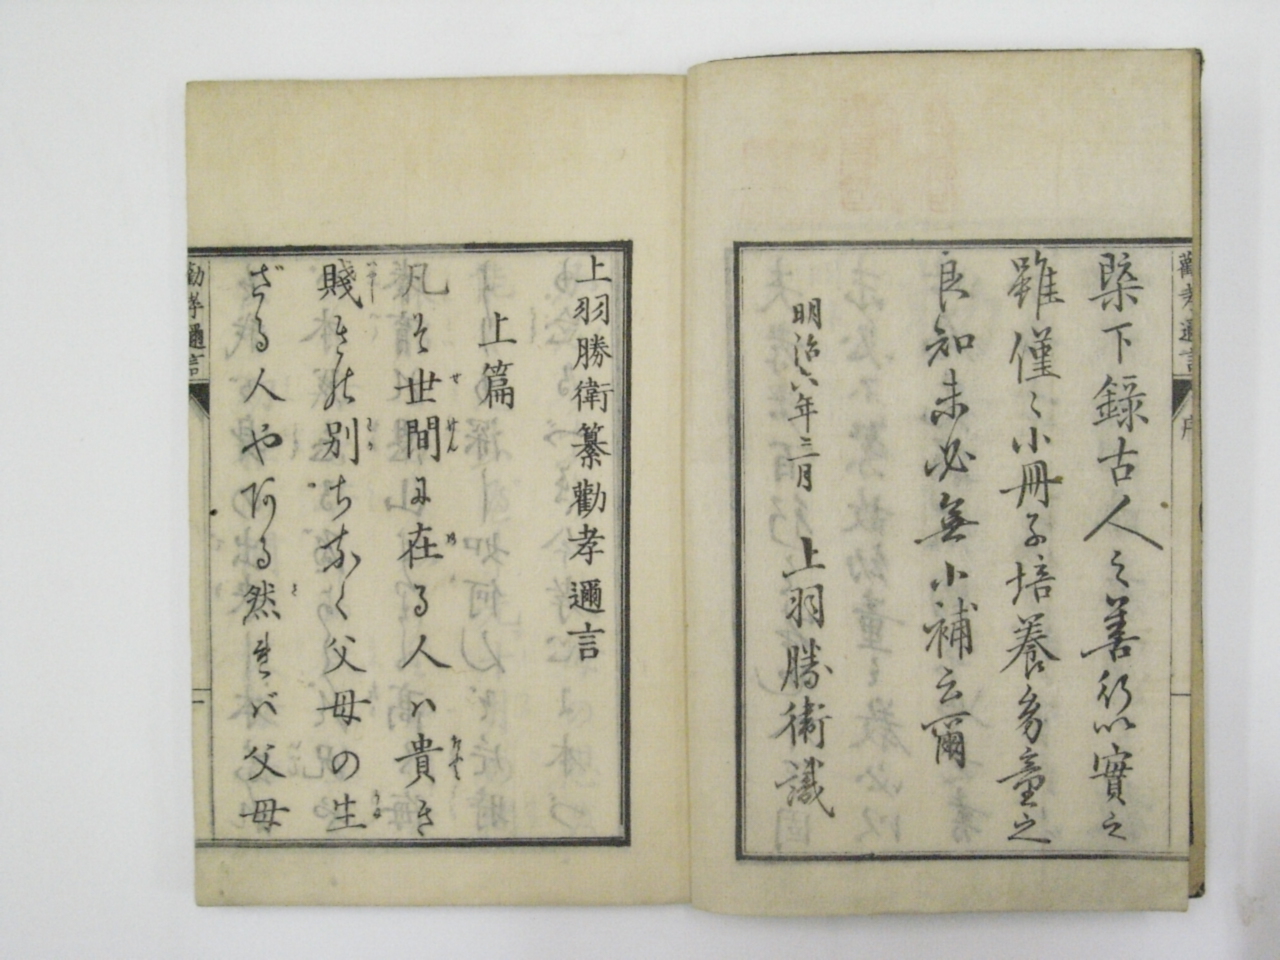 勸孝邇言
序
槩下録古人之善行以實之
雖僅々小冊子培養多童之
良知未必無小補云爾
明治六年三月
上羽勝衛識
上羽勝衛纂勸孝邇言
上篇
凡そ世間に在る人ハ貴き
賤きの別ちなく父母の生
ざる人やある然れバ父母
勸孝邇言
一